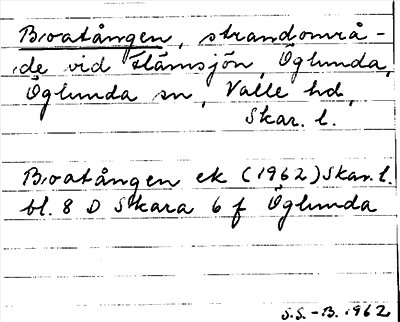 Broatången, strandområ-
de vid Flämsjön, Öglunda,
Öglunda sn, Valle hd,
Skar. l.
Broatången ek (1962) Skar. l.
bl. 8 D Skara 6 f Öglunda
S.S.-B. 1962